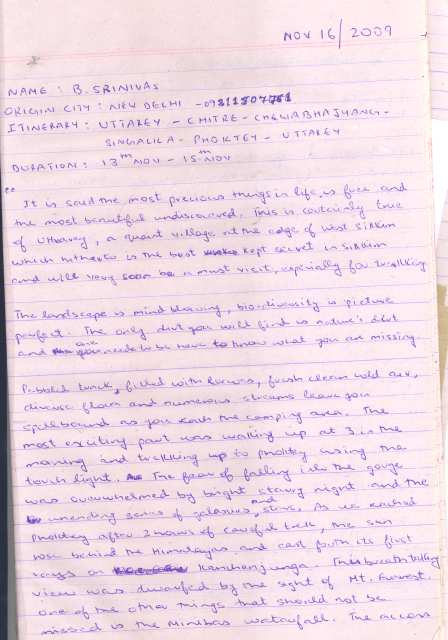 NOV 16/2009
NAME : B. SRINIVAS
ORIGIN CITY : NEW DELHI -
ITINERARY : UTTAREY - CHITRE - CHEWABHANJYANG -
SINGALILA - PHOKTEY - UTTAREY
DURATION : 13th NOV - 15th NOV
"It is said the most precious things in life, is free and
the most beautiful undiscovered. This is certainly true
of Uttarey, a quaint village at the edge of West Sikkim
which hitherto is the best kept secret in Sikkim
and will very soon be a must visit, especially for trekking
The landscape is mind blowing, bio-diversity is picture
perfect. The only dirt you will find is nature's dirt
and one needs to be here to know what you are missing.
Pebbled track, filled with ferns, fresh clean cold air,
diverse flora and numerous streams leave you
spellbound as you reach the camping area. The
most exciting part was walking up at 3 in the
morning and trekking up to phoktey using the
torch light. The fear of falling into the gorge
was overwhelmed by bright starry night and the
unending series of galaxies, and stars. As we reached
Phoktey after 2 hours of careful trek, the sun
rose behind the Himalayas and cast forth its first
rays on Kanchenjunga. This breath taking
view was dwarfed by the sight of Mt. Everest.
One of the other things that should not be
missed is the Mainbas waterfall. The access